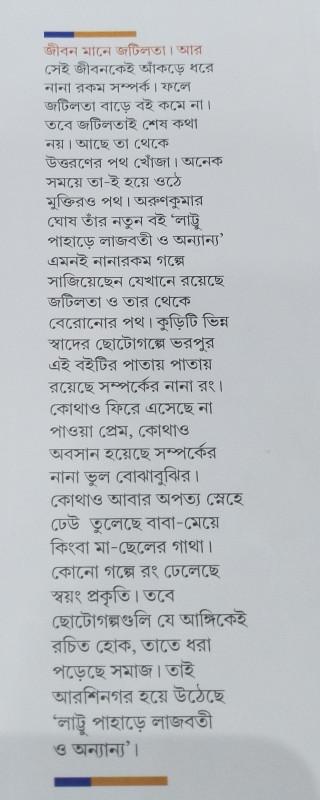 জীবন মানে জটিলতা। আর
সেই জীবনকেই আঁকড়ে ধরে
নানা রকম সম্পর্ক। ফলে
জটিলতা বাড়ে বই কমে না।
তবে জটিলতাই শেষ কথা
নয়। আছে তা থেকে
উত্তরণের পথ খোঁজা। অনেক
সময়ে তা-ই হয়ে ওঠে
মুক্তিরও পথ। অরুণকুমার
ঘোষ তাঁর নতুন বই ‘লাট্টু
পাহাড়ে লাজবতী ও অন্যান্য’
এমনই নানারকম গল্পে
সাজিয়েছেন যেখানে রয়েছে
জটিলতা ও তার থেকে
বেরোনোর পথ। কুড়িটি ভিন্ন
স্বাদের ছোটোগল্পে ভরপুর
এই বইটির পাতায় পাতায়
রয়েছে সম্পর্কের নানা রং।
কোথাও ফিরে এসেছে না
পাওয়া প্রেম, কোথাও
অবসান হয়েছে সম্পর্কের
নানা ভুল বোঝাবুঝির।
কোথাও আবার অপত্য স্নেহে
ঢেউ তুলেছে বাবা-মেয়ে
কিংবা মা-ছেলের গাথা।
কোনো গল্পে রং ঢেলেছে
স্বয়ং প্রকৃতি। তবে
ছোটোগল্পগুলি যে আঙ্গিকেই
রচিত হোক, তাতে ধরা
পড়েছে সমাজ। তাই
আরশিনগর হয়ে উঠেছে
‘লাট্টু পাহাড়ে লাজবতী
ও অন্যান্য’।